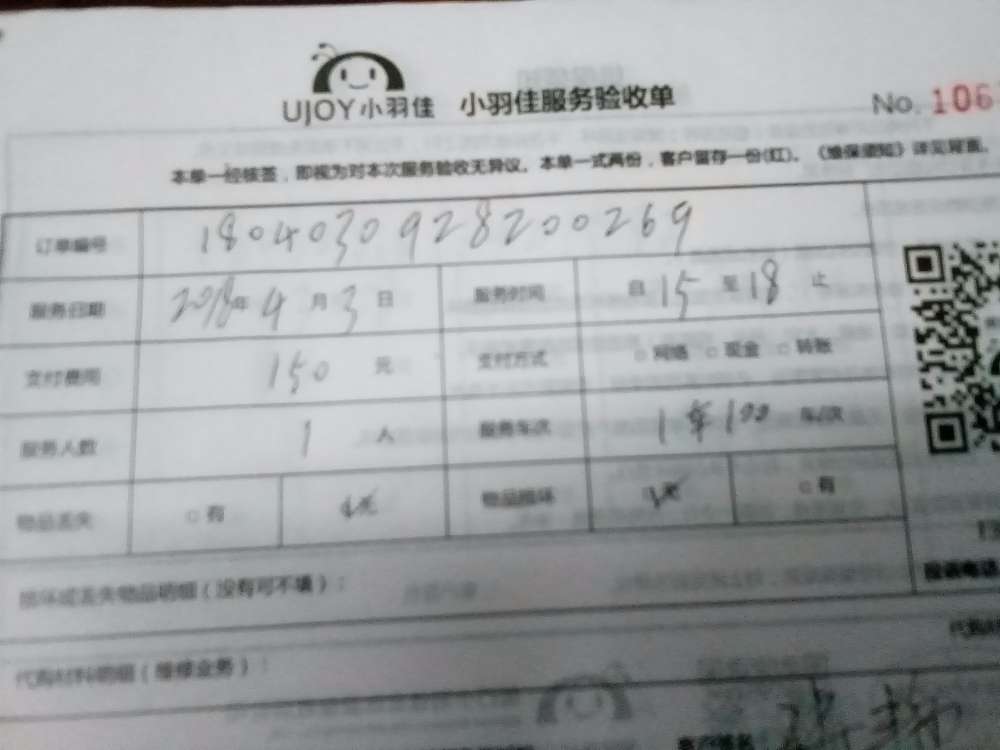 UJOY小羽佳 小羽佳服务验收单 No. 106
本单一经核签，即视为对本次服务验收无异议。本单一式两份，客户留存一份(红)。《维保须知》详见背面。
订单编号 1804030928200269
服务日期 2018年4月3日 服务时间 自15至18止
支付费用 150元 支付方式 □网络 □现金 □转账
服务人数 1人 服务车次 1车100 车/次
物品丢失 □有 无 物品损坏 无 □有
损坏或丢失物品明细（没有可不填）：
报调电话
代购材料明细（维修业务）：
代购
客户签名